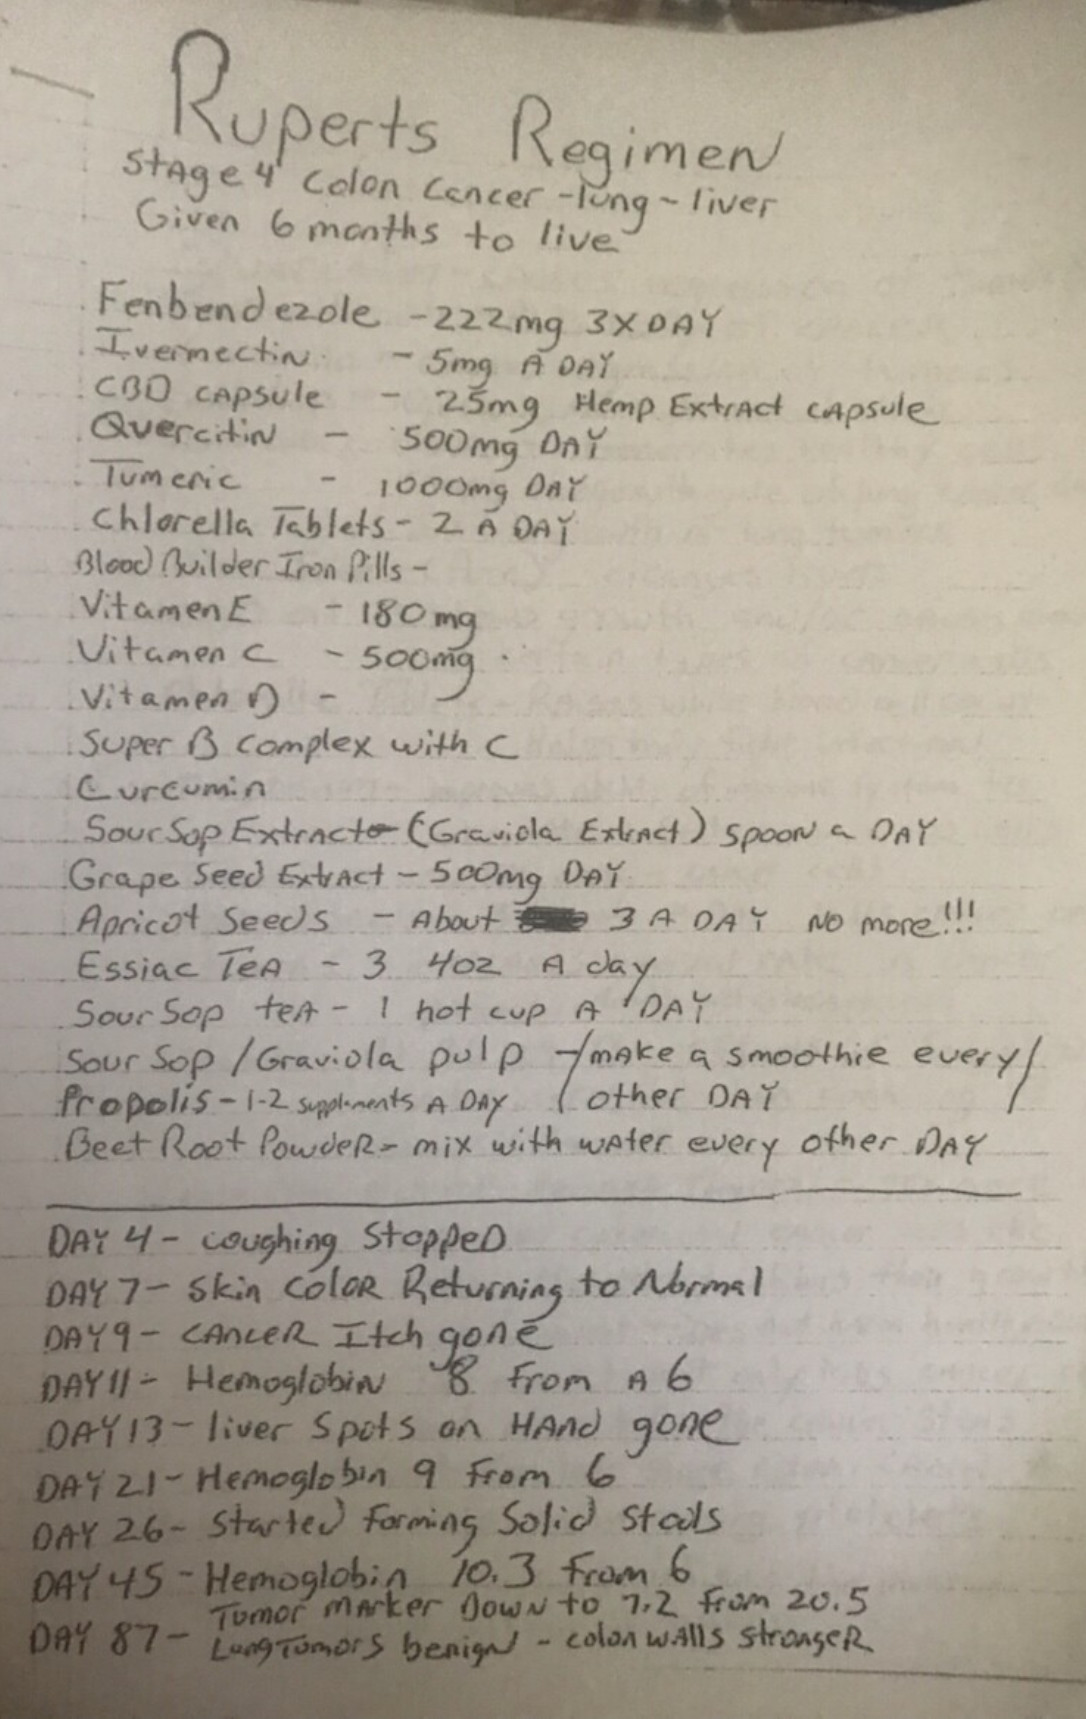 Ruperts Regimen
Stage 4 Colon Cancer - lung - liver
Given 6 months to live
Fenbendezole - 222mg 3X DAY
Ivermectin - 5mg A DAY
CBD CAPSULE - 25mg Hemp Extract CAPSULE
Quercitin - 500mg DAY
Tumeric - 1000mg DAY
Chlorella Tablets - 2 A DAY
Blood Builder Iron Pills -
Vitamen E - 180mg
Vitamen C - 500mg
Vitamen D -
Super B Complex with C
Curcumin
Sour Sop Extract - (Graviola Extract) spoon a DAY
Grape Seed Extract - 500mg DAY
Apricot Seeds - About 3 A DAY NO more!!!
Essiac TeA - 3 4oz A day
Sour Sop teA - 1 hot cup A DAY
Sour Sop / Graviola pulp - / make a smoothie every /
Propolis - 1-2 supplements A DAY / other DAY
Beet Root Powder - mix with water every other DAY
DAY 4 - Coughing Stopped
DAY 7 - Skin Color Returning to Normal
DAY 9 - CANCER Itch gone
DAY 11 - Hemoglobin 8 from A 6
DAY 13 - liver Spots on HAND gone
DAY 21 - Hemoglobin 9 from 6
DAY 26 - Started forming Solid Stools
DAY 45 - Hemoglobin 10.3 from 6
Tumor MARKER DOWN to 7.2 from 20.5
DAY 87 - Lung Tumors benign - colon WALLS stronger